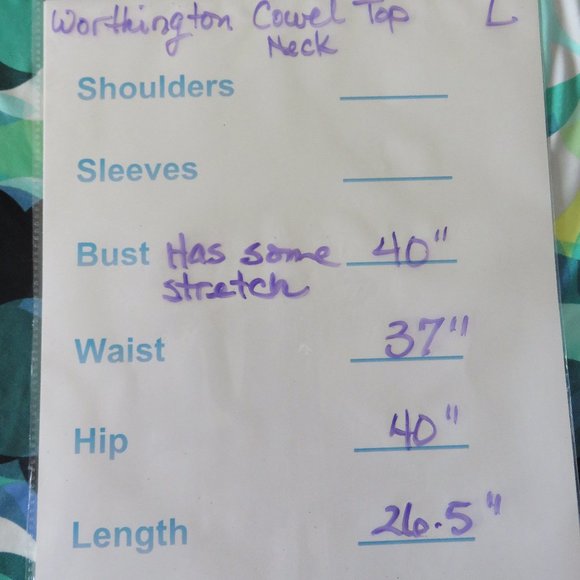 Worthington Cowel Top L
Neck
Shoulders
Sleeves
Bust Has some 40"
stretch
Waist 37"
Hip 40"
Length 26.5"